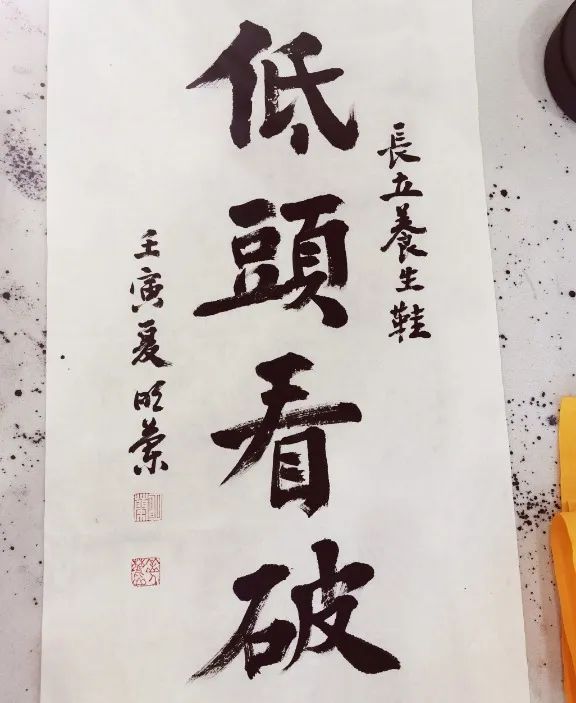 長立養生鞋
低頭看破
壬寅夏明蘭